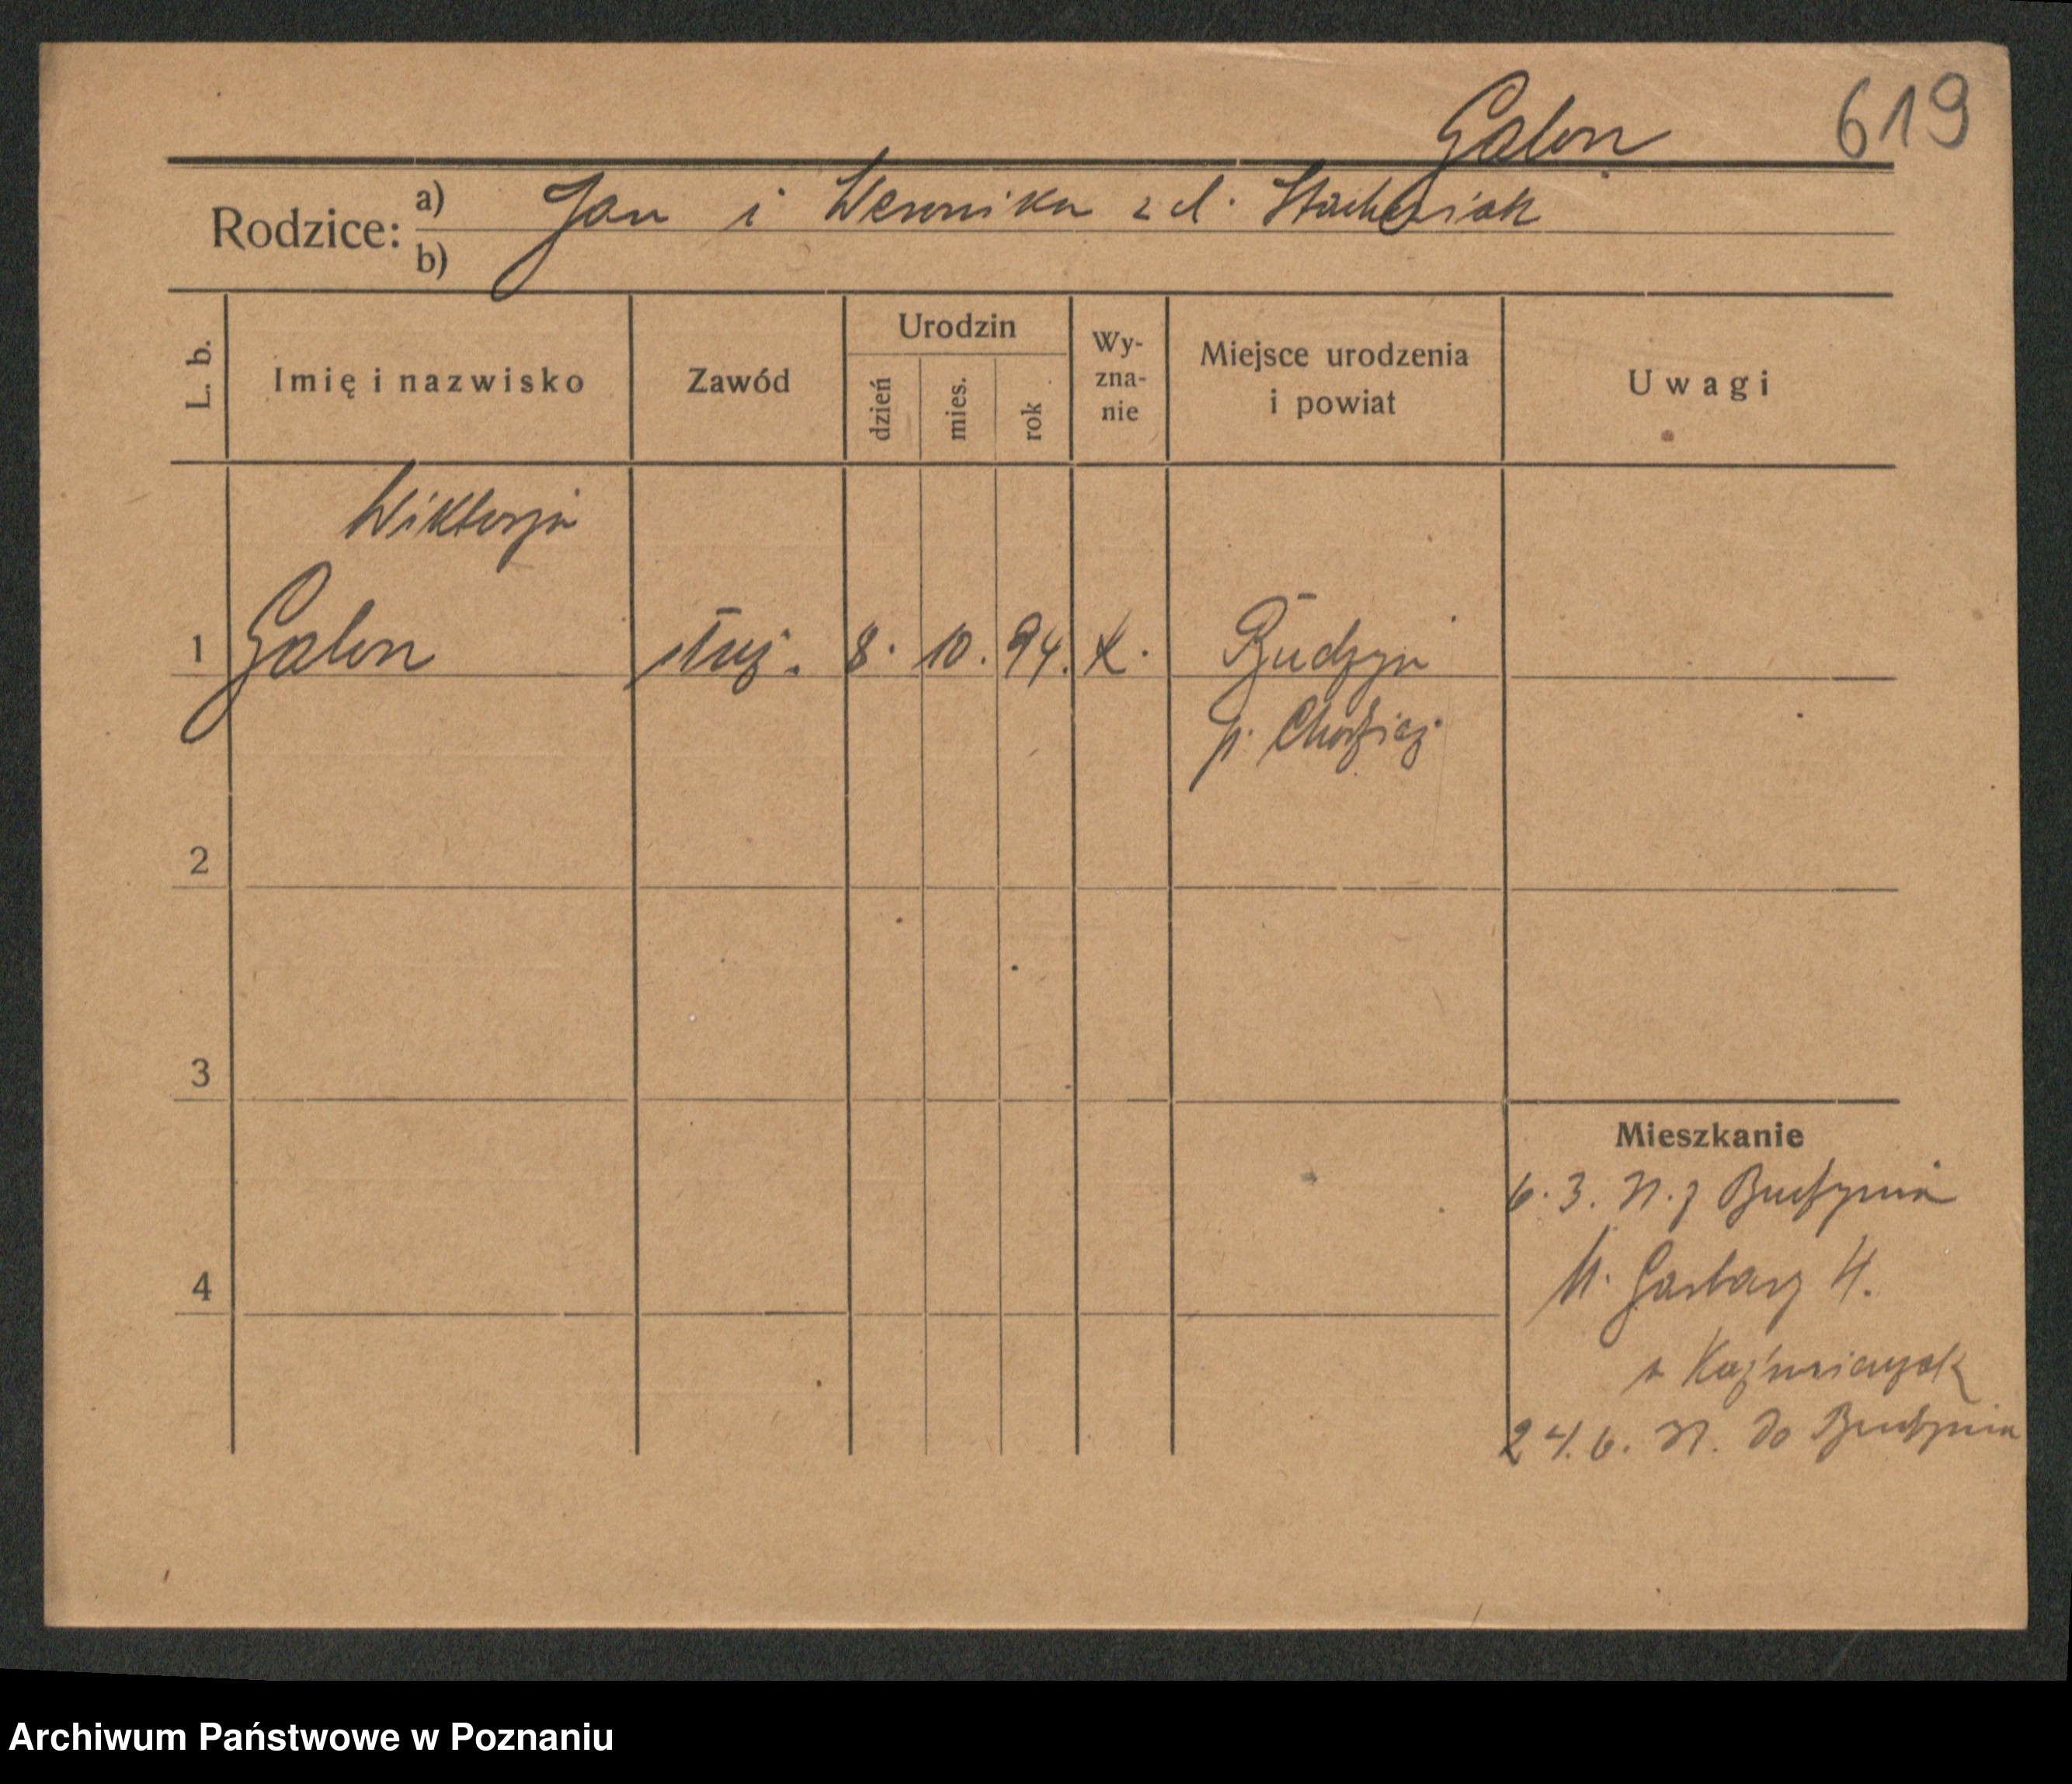 Galon 619
Rodzice: a) Jan i Weronika z d. Stachowiak
b)
L. b. Imię i nazwisko Zawód Urodzin dzień mies. rok Wy-zna-nie Miejsce urodzenia i powiat Uwagi
Wiktorja
1 Galon służ. 8. 10. 94. k. Budzyń
p. Chodzież
2
3
Mieszkanie
6. 3. 21. z Budzynia
4 Garbary 4.
Kaźmierczak
24. 6. 21. do Budzynia
Archiwum Państwowe w Poznaniu